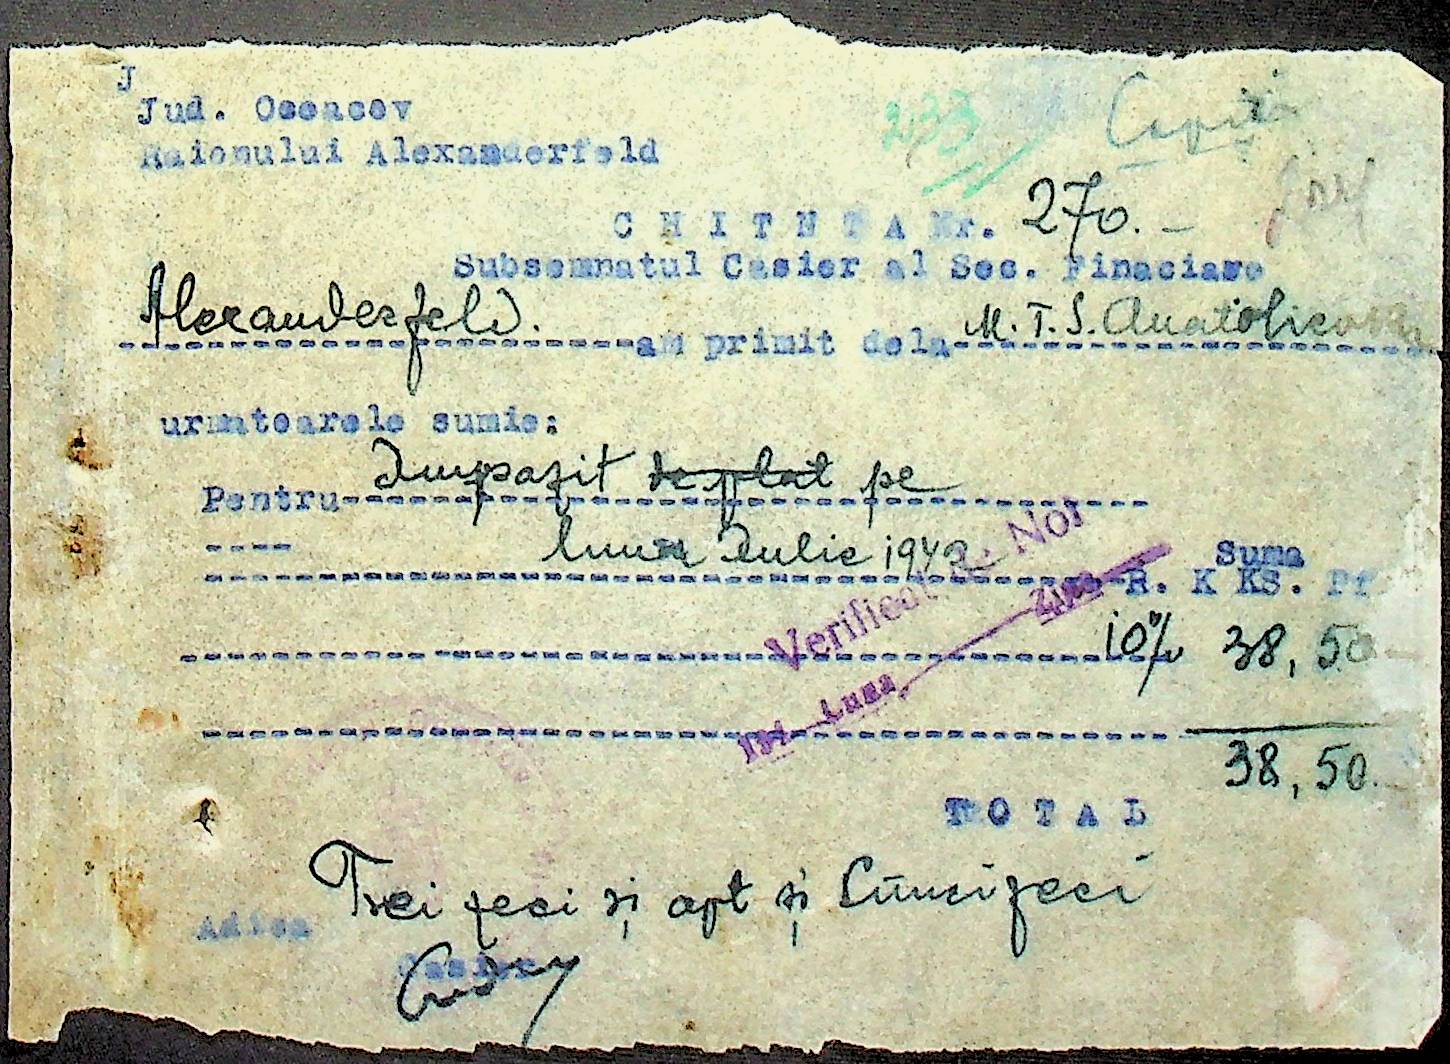 J
Jud. Oceacov
Raionului Alexanderfeld
233
C H I T N T A Nr. 270.-
Subsemnatul Casier al Sec. Finaciare
Alexanderfeld. am primit dela M.T.S. Anatolievca
urmatoarele sumie:
Pentru Impozit de plat pe
luna Iulie 1942
Suma
R. K KS. Pf
Verificat
Luna
10% 38,50
38,50.
T O T A L
Adica Trei zeci și opt și Cincizeci
Casier